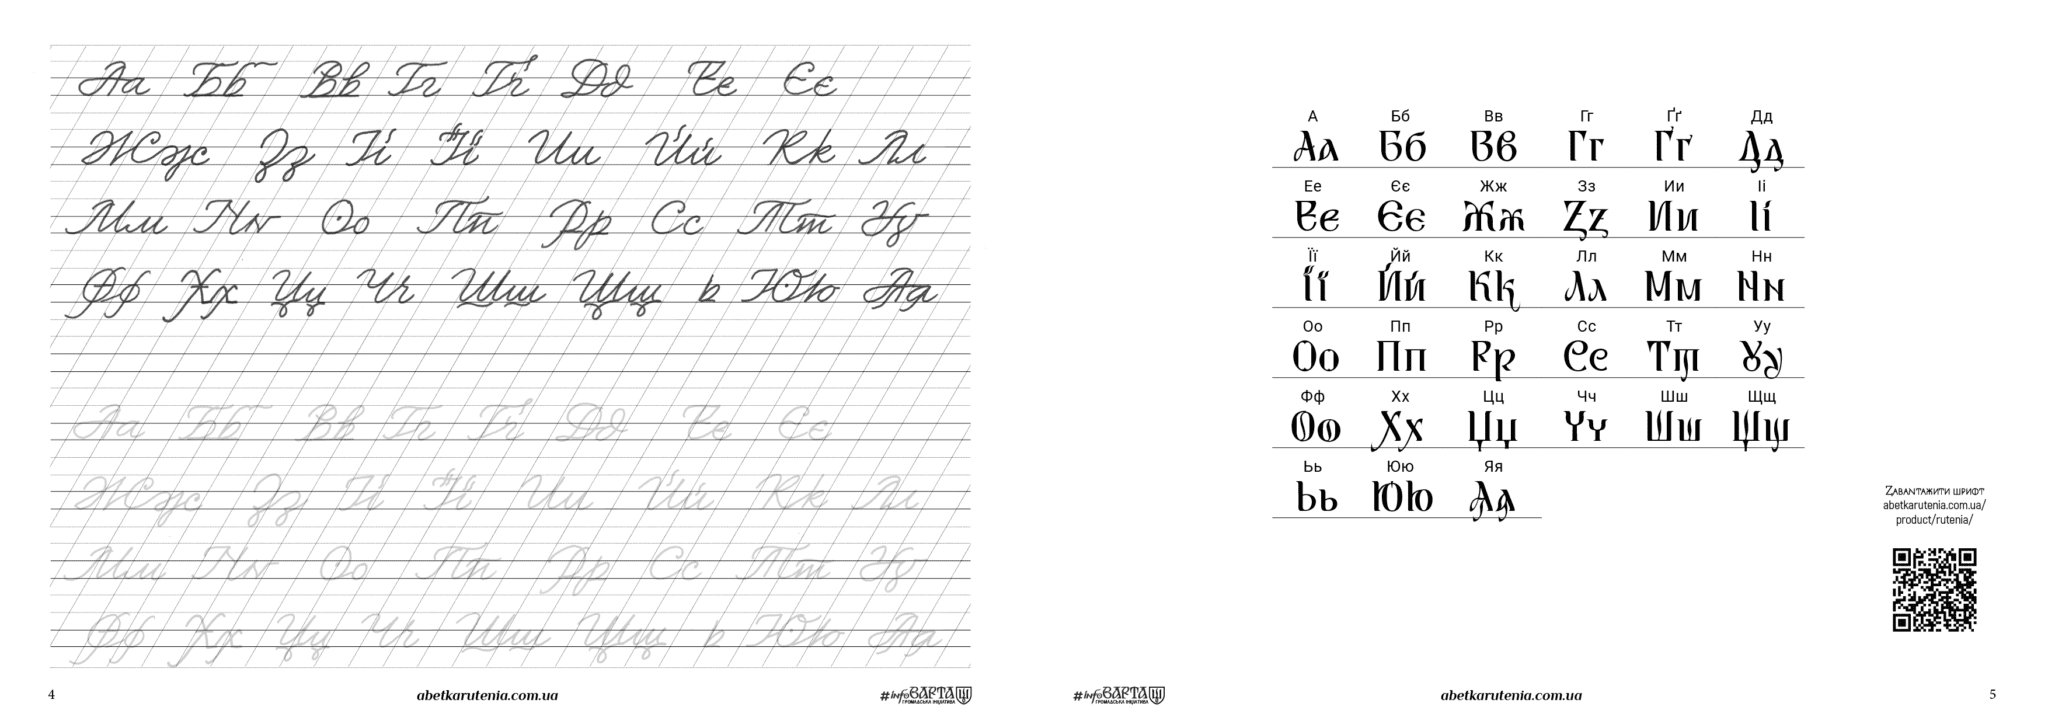 Аа Бб Вв Гг Ґґ Дд Ее Єє
Жж Зз Іі Її Ии Йй Кк Лл
Мм Нн Оо Пп Рр Сс Тт Уу
Фф Хх Цц Чч Шш Щщ ь Юю Яя
Аа Бб Вв Гг Ґґ Дд Ее Єє
Жж Зз Іі Її Ии Йй Кк Лл
Мм Нн Оо Пп Рр Сс Тт Уу
Фф Хх Цц Чч Шш Щщ ь Юю Яя
4
abetkarutenia.com.ua
#infoВАРТА
ГРОМАДСЬКА ІНІЦІАТИВА
А Бб Вв Гг Ґґ Дд
Аа Бб Вв Гг Ґґ Дд
Ее Єє Жж Зз Ии Іі
Ее Єє Жж Зз Ии Іі
Її Йй Кк Лл Мм Нн
Її Йй Кк Лл Мм Нн
Оо Пп Рр Сс Тт Уу
Оо Пп Рр Сс Тт Уу
Фф Хх Цц Чч Шш Щщ
Фф Хх Цц Чч Шш Щщ
Ьь Юю Яя
Ьь Юю Яя
Завантажити шрифт
abetkarutenia.com.ua/
product/rutenia/
#infoВАРТА
ГРОМАДСЬКА ІНІЦІАТИВА
abetkarutenia.com.ua
5